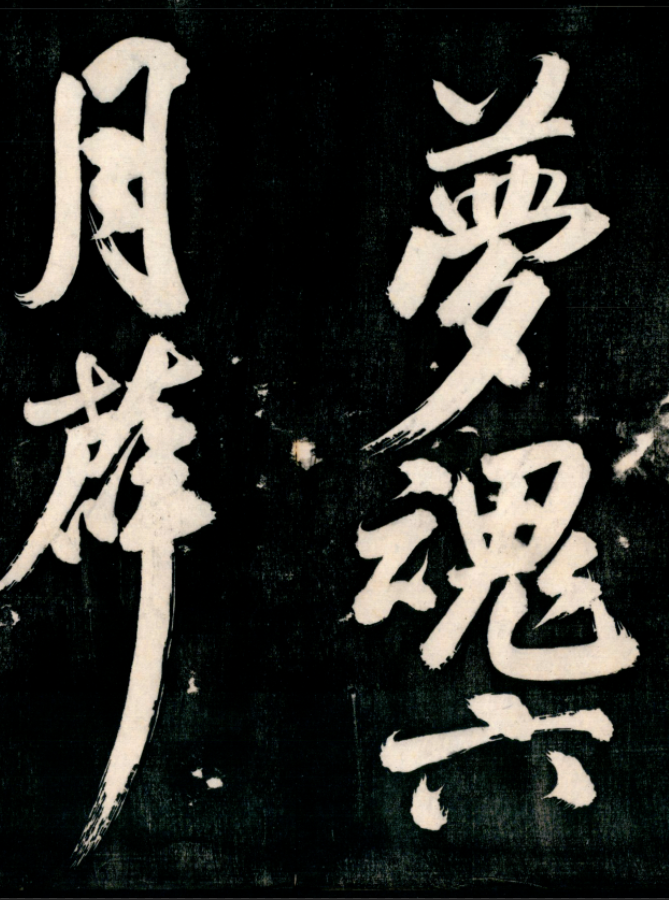 夢魂六
月薜